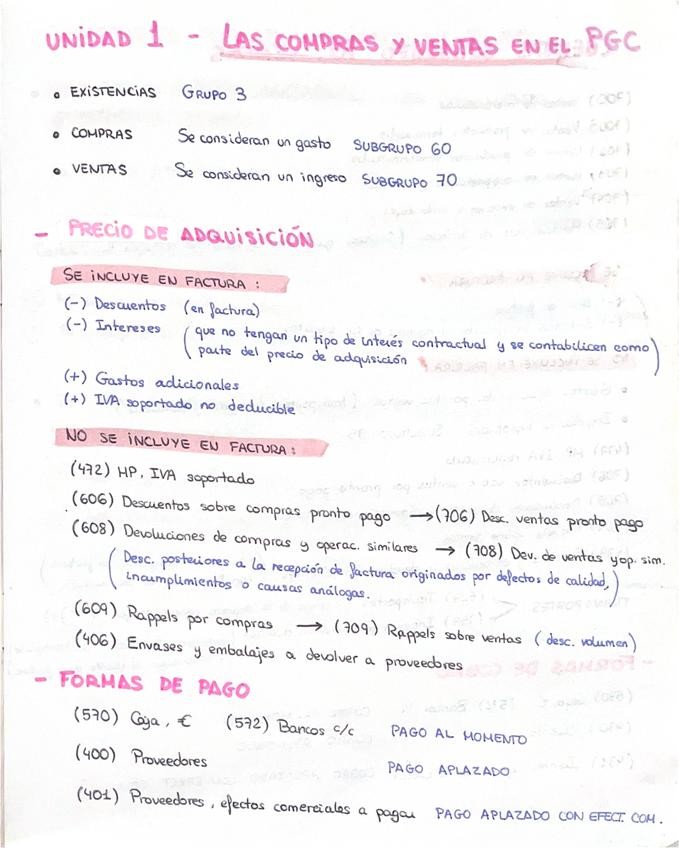 UNIDAD 1 - LAS COMPRAS Y VENTAS EN EL PGC
• EXISTENCIAS GRUPO 3
• COMPRAS Se consideran un gasto SUBGRUPO 60
• VENTAS Se consideran un ingreso SUBGRUPO 70
- PRECIO DE ADQUISICIÓN
SE INCLUYE EN FACTURA:
(-) Descuentos (en factura)
(-) Intereses (que no tengan un tipo de interés contractual y se contabilicen como
parte del precio de adquisición)
(+) Gastos adicionales
(+) IVA soportado no deducible
NO SE INCLUYE EN FACTURA:
(472) HP, IVA soportado
(606) Descuentos sobre compras pronto pago → (706) Desc. ventas pronto pago
(608) Devoluciones de compras y operac. similares → (708) Dev. de ventas y op. sim.
(Desc. posteriores a la recepción de factura originados por defectos de calidad,
incumplimientos o causas análogas.)
(609) Rappels por compras → (709) Rappels sobre ventas (desc. volumen)
(406) Envases y embalajes a devolver a proveedores
- FORMAS DE PAGO
(570) Caja, € (572) Bancos c/c PAGO AL MOMENTO
(400) Proveedores PAGO APLAZADO
(401) Proveedores, efectos comerciales a pagar PAGO APLAZADO CON EFECT. COM.